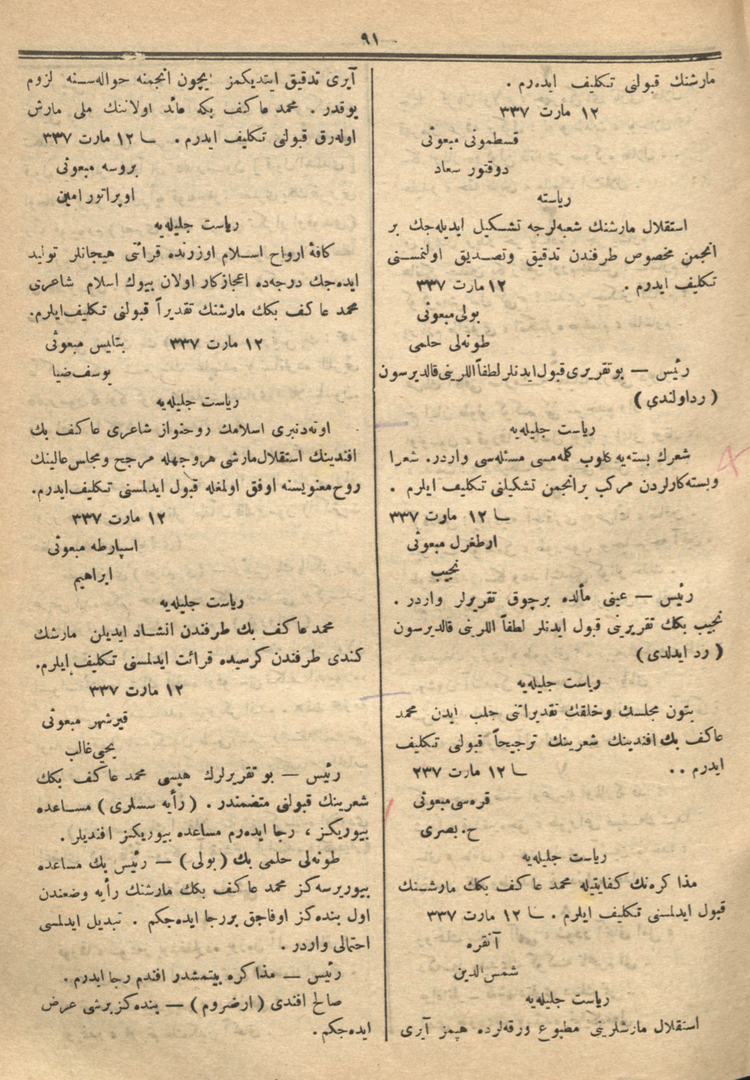 — ٩١ —
مارشنك قبولنی تكلیف ایدەرم .
١٢ مارت ٣٣٧
قسطمونی مبعوثی
دوقتور سعاد
ریاسته
استقلال مارشنك شعبه‌لرجه تشكیل ایدیله‌جك بر
انجمن مخصوص طرفندن تدقیق وتصدیق اولنمسنی
تكلیف ایدرم . ١٢ مارت ٣٣٧
بولی مبعوثی
طونه‌لی حلمی
رئیس — بو تقریری قبول ایدنلر لطفاً اللرینی قالدیرسون
( رد اولندی )
ریاست جلیله‌یه
شعرك بسته‌یه كلوب كلمه‌مسی مسئله‌سی واردر . شعرا
وبسته‌كارلردن مركب بر انجمن تشكیلنی تكلیف ایلرم .
١٢ مارت ٣٣٧
ارطغرل مبعوثی
نجیب
رئیس — عینی مآلده برچوق تقریرلر واردر .
نجیب بكك تقریرینی قبول ایدنلر لطفاً اللرینی قالدیرسون
( رد ایدلدی )
ریاست جلیله‌یه
بتون مجلسك وخلقك تقدیراتنی جلب ایدن محمد
عاكف بك افندینك شعرینك ترجیحاً قبولنی تكلیف
ایدرم . . ١٢ مارت ٢٣٧
قره‌سی مبعوثی
ح . بصری
ریاست جلیله‌یه
مذا كره‌نك كفایتیله محمد عاكف بكك مارشنك
قبول ایدلمسنی تكلیف ایلرم . ١٢ مارت ٣٣٧
آنقره
شمس الدین
ریاست جلیله‌یه
استقلال مارشلرینی مطبوع ورقه‌لرده هپمز آیری
آیری تدقیق ایتدیكمز ایچون انجمنه حواله‌سنه لزوم
یوقدر . محمد عاكف بكه عائد اولاننك ملی مارش
اوله‌رق قبولنی تكلیف ایدرم . ١٢ مارت ٣٣٧
بروسه مبعوثی
اوپراتور امین
ریاست جلیله‌یه
كافۀ ارواح اسلام اوزرنده قرائتی هیجانلر تولید
ایده‌جك درجه‌ده اعجازكار اولان بیوك اسلام شاعری
محمد عاكف بكك مارشنك تقدیراً قبولنی تكلیف ایلرم.
١٢ مارت ٣٣٧ بتلیس مبعوثی
یوسف ضیا
ریاست جلیله‌یه
اوته‌دنبری اسلامك روحنواز شاعری عاكف بك
افندینك استقلال مارشی هر وجهله مرجح ومجلس عالینك
روح معنویسنه اوفق اولمغله قبول ایدلمسنی تكلیف ایدرم.
١٢ مارت ٣٣٧
اسپارطه مبعوثی
ابراهیم
ریاست جلیله‌یه
محمد عاكف بك طرفندن انشاد ایدیلن مارشك
كندی طرفندن كرسیده قرائت ایدلمسنی تكلیف ایلرم.
١٢ مارت ٣٣٧
قیرشهر مبعوثی
یحیی غالب
رئیس — بو تقریرلرك هپسی محمد عاكف بكك
شعرینك قبولنی متضمندر . ( رأیه سسلری ) مساعده
بیوریكز ، رجا ایده‌رم مساعده بیوریكز افندیلر .
طونه‌لی حلمی بك ( بولی ) — رئیس بك مساعده
بیوریرسه‌كز محمد عاكف بكك مارشنك رأیه وضعندن
اول بنده‌كز اوفاجق بر رجا ایده‌جكم . تبدیل ایدلمسی
احتمالی واردر .
رئیس — مذا كره بیتمشدر افندم رجا ایدرم .
صالح افندی ( ارضروم ) — بنده‌كز برشی عرض
ایده‌جكم .